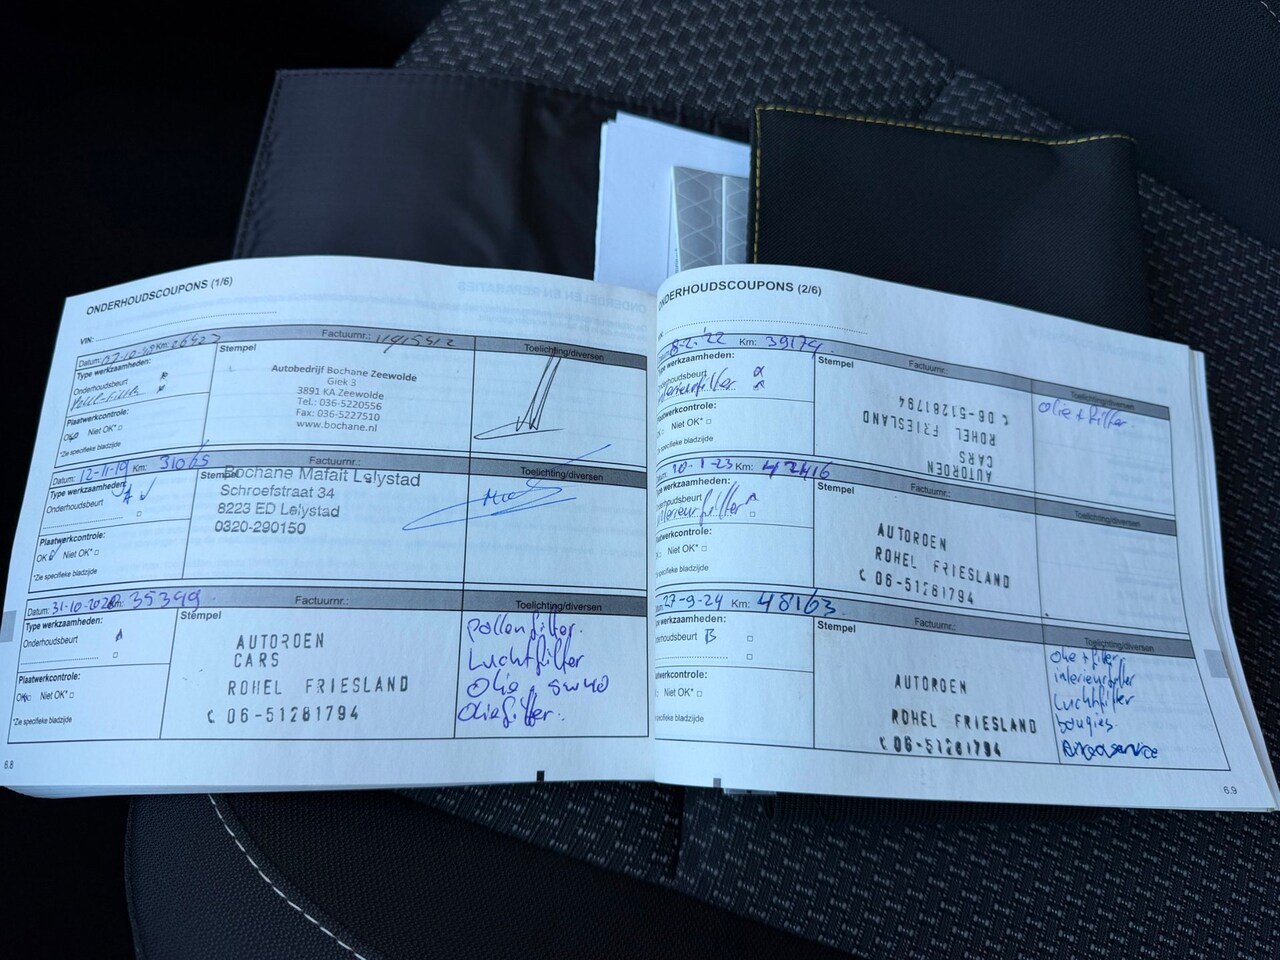 ONDERHOUDSCOUPONS (1/6)
VIN:
Datum: Km: Factuurnr.:
Type werkzaamheden: Stempel Toelichting/diversen
Onderhoudsbeurt
Plaatwerkcontrole:
OK Niet OK*
*Zie specifieke bladzijde
Autobedrijf Bochane Zeewolde
Giek 3
3891 KA Zeewolde
Tel.: 036-5220556
Fax: 036-5227510
www.bochane.nl
Datum: 12-11-19 Km: 31065 Factuurnr.:
Type werkzaamheden: Stempel Toelichting/diversen
Onderhoudsbeurt A
Plaatwerkcontrole:
OK Niet OK*
*Zie specifieke bladzijde
Bochane Mafait Lelystad
Schroefstraat 34
8223 ED Lelystad
0320-290150
Datum: 31-10-2020 Km: 35399 Factuurnr.:
Type werkzaamheden: Stempel Toelichting/diversen
Onderhoudsbeurt A
Plaatwerkcontrole:
OK Niet OK*
*Zie specifieke bladzijde
AUTOROEN
CARS
ROHEL FRIESLAND
06-51281794
pollenfilter.
Luchtfilter
Olie 5W40
Oliefilter.
6.8
ONDERHOUDSCOUPONS (2/6)
VIN:
8-2-'22 Km: 39174 Factuurnr.:
Type werkzaamheden: Stempel Toelichting/diversen
Onderhoudsbeurt
interieurfilter
Plaatwerkcontrole:
Niet OK*
*Zie specifieke bladzijde
AUTOROEN
CARS
ROHEL FRIESLAND
06-51281794
Olie + filter
10-1-23 Km: 42416 Factuurnr.:
Type werkzaamheden: Stempel Toelichting/diversen
Onderhoudsbeurt
interieurfilter
Plaatwerkcontrole:
Niet OK*
Zie specifieke bladzijde
AUTOROEN
ROHEL FRIESLAND
06-51281794
27-9-24 Km: 48163 Factuurnr.:
Type werkzaamheden: Stempel Toelichting/diversen
Onderhoudsbeurt B
Plaatwerkcontrole:
Niet OK*
specifieke bladzijde
AUTOROEN
ROHEL FRIESLAND
06-51281794
Olie + filter
interieurfilter
Luchtfilter
bougies.
Aircoservice
6.9